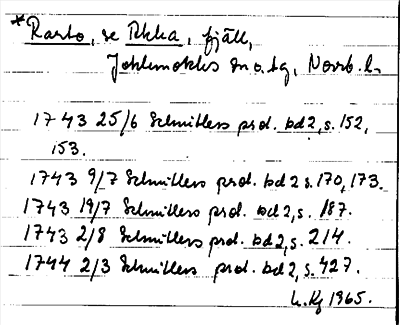 *Rasto, se Rkka, fjäll,
Jokkmokks sn o. tg, Norrb. l.
1743 25/6 Schnitlers prot. bd 2, s. 152,
153.
1743 9/7 Schnitlers prot. bd 2 s. 170, 173.
1743 19/7 Schnitlers prot. bd 2, s. 187.
1743 2/8 Schnitlers prot. bd 2, s. 214.
1744 2/3 Schnitlers prot. bd 2, s. 427.
1965.